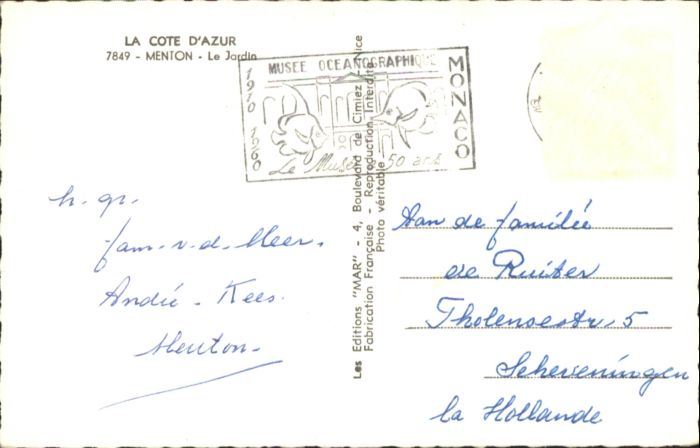 LA COTE D'AZUR
7849 - MENTON - Le Jardin
1910 1960
MUSEE OCEANOGRAPHIQUE
MONACO
Le Musée 50 ans
Les Editions "MAR" - 4, Boulevard de Cimiez - Nice
Fabrication Française - Reproduction Interdite
Photo véritable
h. gr.
fam. v. d. Meer.
André - Kees.
Menton -
Aan de familie
de Ruiter
Tholensestr, 5
Scheveningen
la Hollande